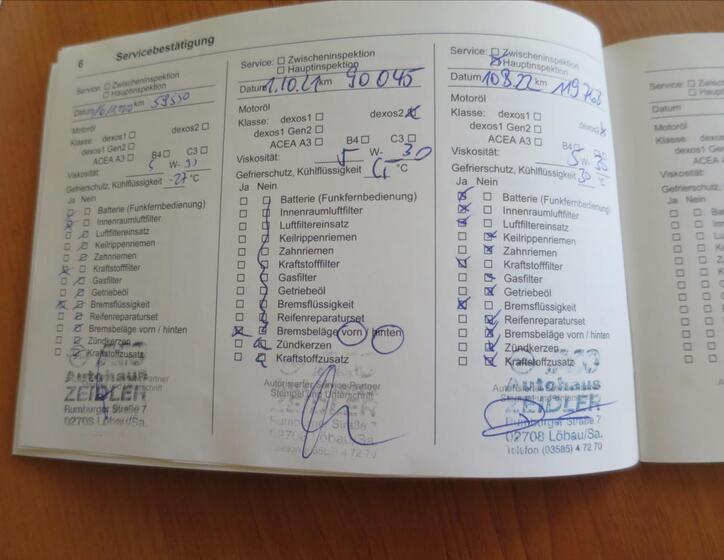 6 Servicebestätigung
Service: Zwischeninspektion
Hauptinspektion
Datum km 59550
Motoröl
Klasse: dexos1 dexos2
dexos1 Gen2
ACEA A3 B4 C3
Viskosität: 5 W- 30
Gefrierschutz, Kühlflüssigkeit -27 °C
Ja Nein
Batterie (Funkfernbedienung)
Innenraumluftfilter
Luftfiltereinsatz
Keilrippenriemen
Zahnriemen
Kraftstofffilter
Gasfilter
Getriebeöl
Bremsflüssigkeit
Reifenreparaturset
Bremsbeläge vorn / hinten
Zündkerzen
Kraftstoffzusatz
Autohaus
ZEIDLER
Rumburger Straße 7
02708 Löbau/Sa.
Service: Zwischeninspektion
Hauptinspektion
Datum 1.10.21 km 90045
Motoröl
Klasse: dexos1 dexos2
dexos1 Gen2
ACEA A3 B4 C3
Viskosität: 5 W- 30
Gefrierschutz, Kühlflüssigkeit °C
Ja Nein
Batterie (Funkfernbedienung)
Innenraumluftfilter
Luftfiltereinsatz
Keilrippenriemen
Zahnriemen
Kraftstofffilter
Gasfilter
Getriebeöl
Bremsflüssigkeit
Reifenreparaturset
Bremsbeläge vorn / hinten
Zündkerzen
Kraftstoffzusatz
Autorisierter Service-Partner
Stempel und Unterschrift
ZEIDLER
Rumburger Straße 7
02708 Löbau/Sa.
Service: Zwischeninspektion
Hauptinspektion
Datum 10.8.22 km
Motoröl
Klasse: dexos1 dexos2
dexos1 Gen2
ACEA A3 B4 C3
Viskosität: 5 W- 30
Gefrierschutz, Kühlflüssigkeit 30 °C
Ja Nein
Batterie (Funkfernbedienung)
Innenraumluftfilter
Luftfiltereinsatz
Keilrippenriemen
Zahnriemen
Kraftstofffilter
Gasfilter
Getriebeöl
Bremsflüssigkeit
Reifenreparaturset
Bremsbeläge vorn / hinten
Zündkerzen
Kraftstoffzusatz
Autohaus
ZEIDLER
Rumburger Straße 7
02708 Löbau/Sa.
Telefon (03585) 4 72 70
Service:
Datum
Motoröl
Klasse:
dexos1
ACEA
Viskosität:
Gefrierschutz, Kühl
Ja Nein